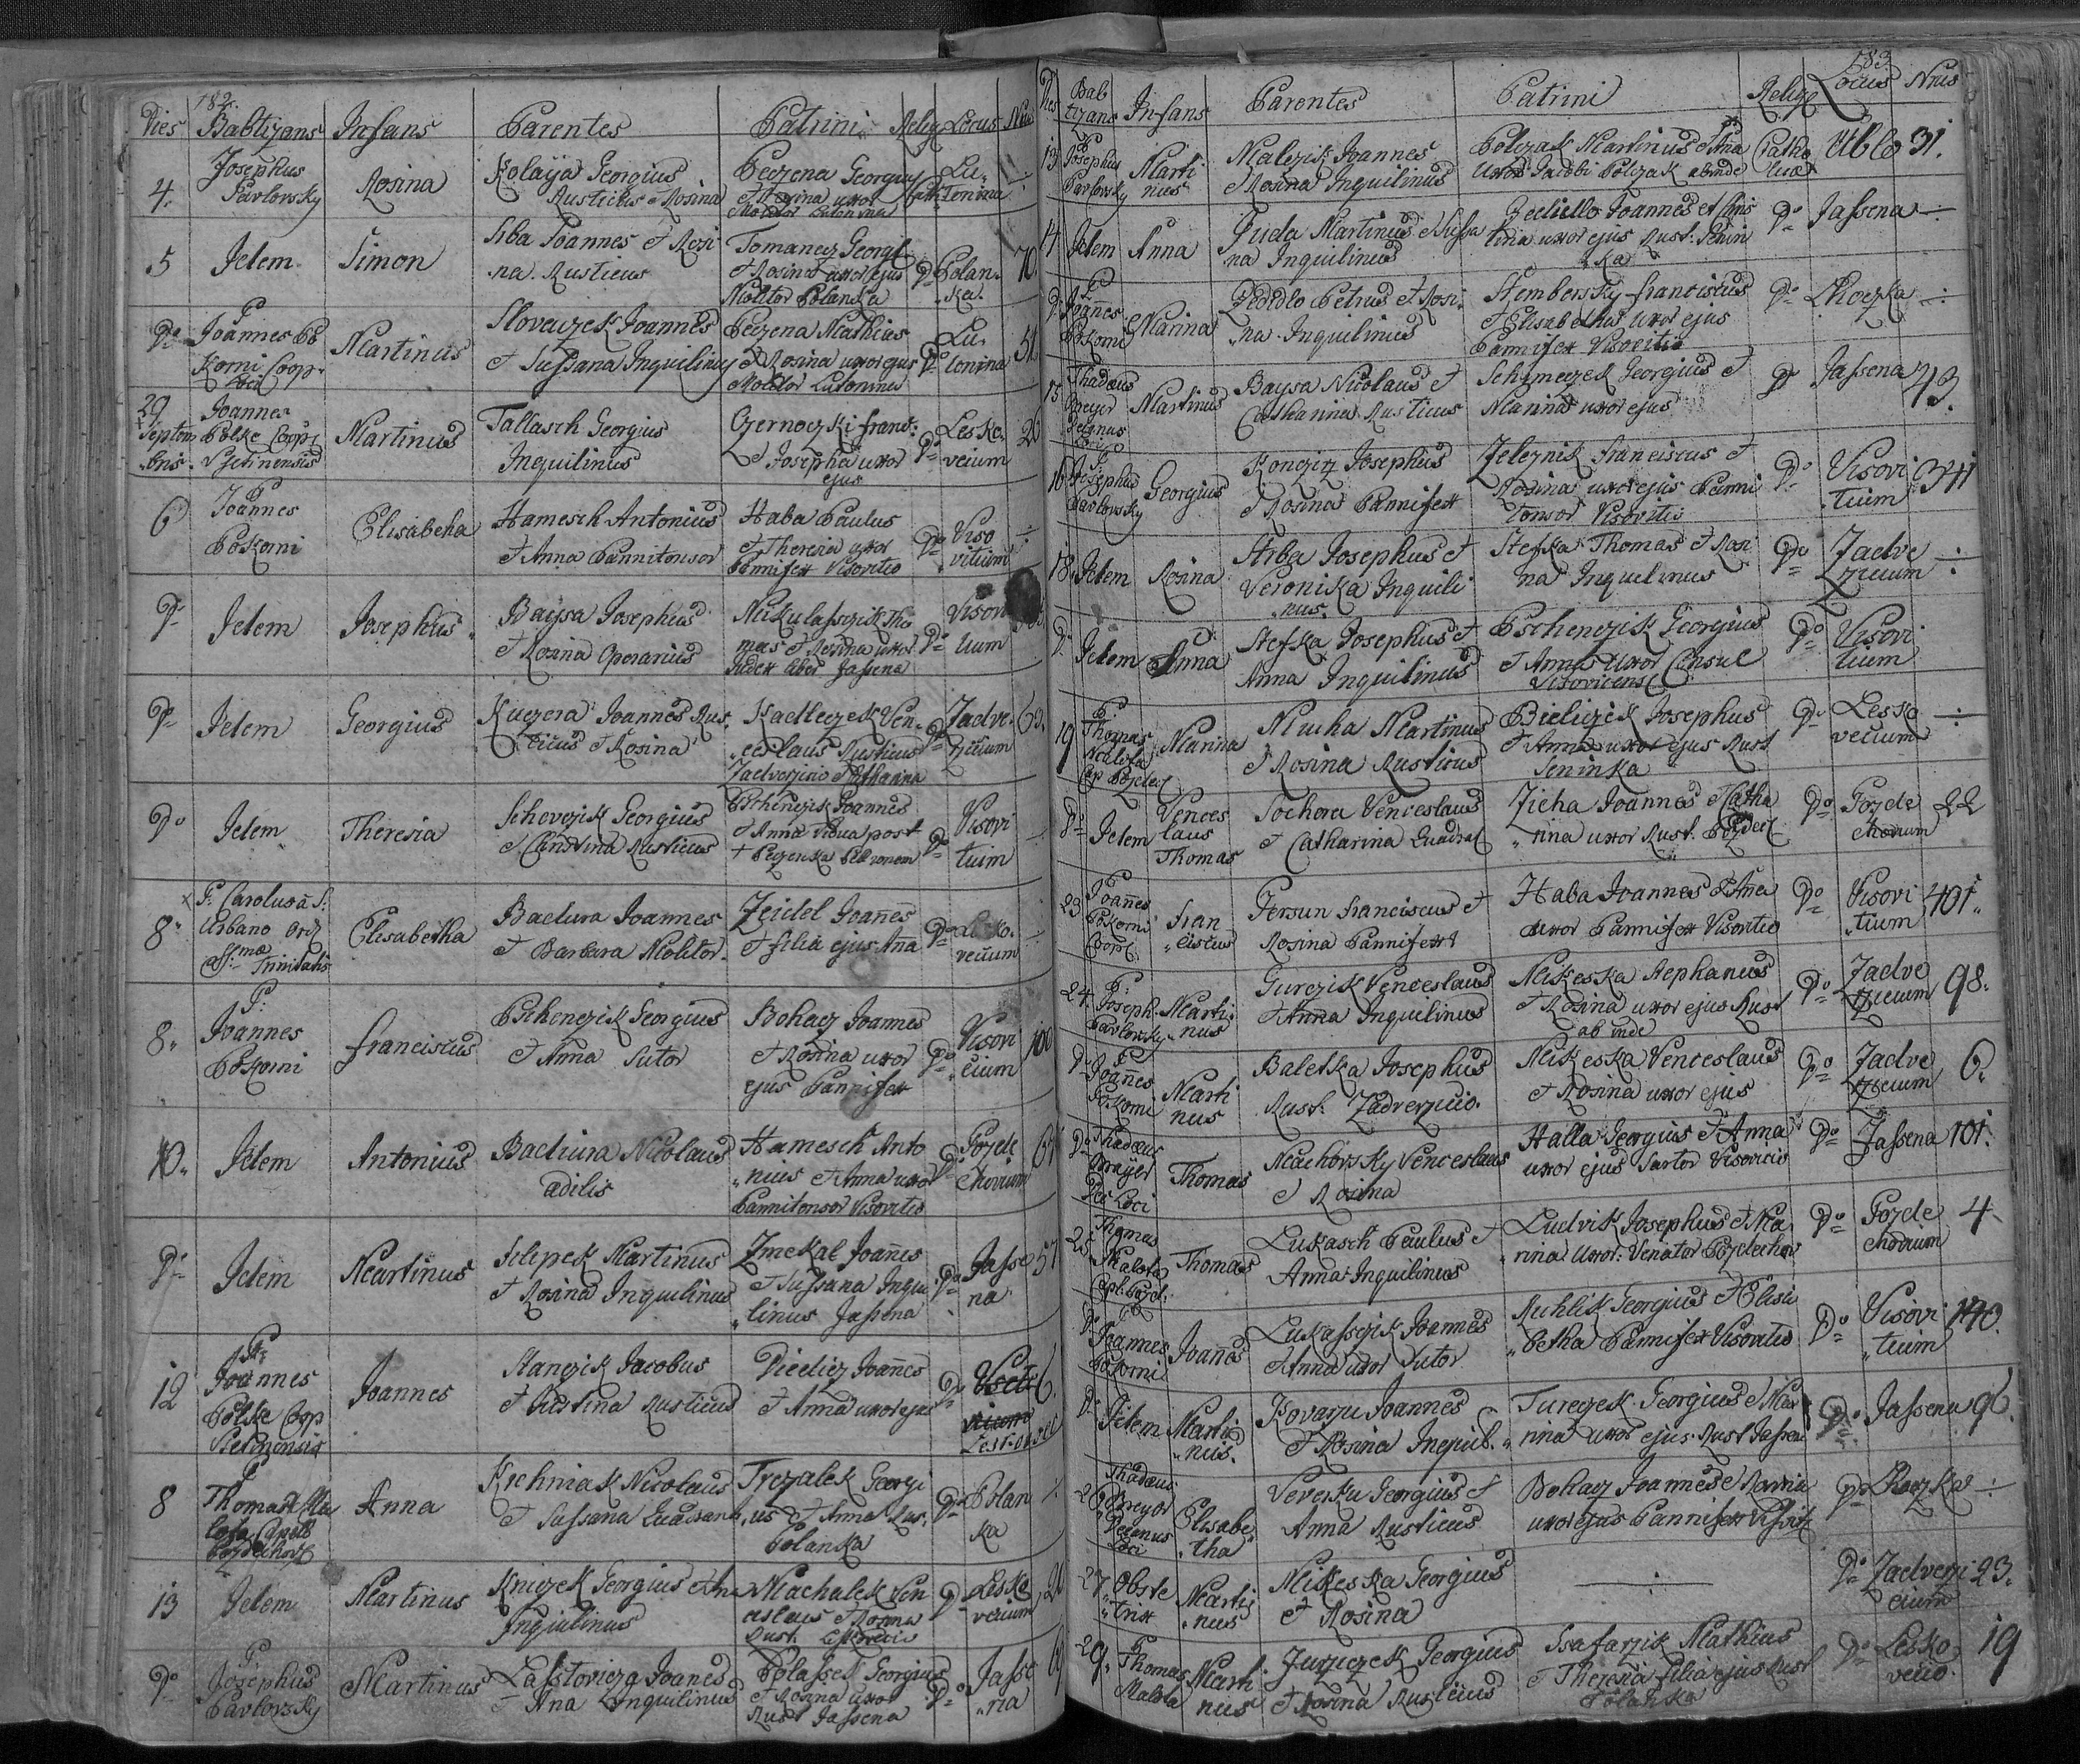 182.
Dies Babtizans Infans Parentes Patrini Relig Locus Nrus
4. Josephus Pavlovsky Rosina Kolaÿa Georgius Rusticus et Rosina Peczena Georgius et Rosina uxor Molitor Lutonina Cath. Lutonina ÷
5 Idem Simon Srba Joannes et Rosina Rusticus Tomanecz Georgi et Rosina uxor ejus Molitor Polanka Do Polanka 70.
Do P. Joannes Pokorni Coop. Loci Martinus Slovaczek Joannes et Sussana Inquilinus Peczena Mathias et Rosina uxor ejus Molitor Lutonina Do Lutonina 51.
29 Septembris Joannes Polke Coop Vsetinensis Martinus Tallasch Georgius Inquilinus Czernoczki Franc: et Josepha uxor ejus Do Leskovecium
6 P. Joannes Pokorni Elisabeha Hamesch Antonius et Anna Pannitonsor Haba Paulus et Theresia uxor Pannifex Visovitio Do Visovitium ÷
Do Idem Josephus Baysa Josephus et Rosina Operarius Mikulassczik Thomas et Rosina uxor Judex liber Jassena Do Visovitium
Do Idem Georgius Kuczera Joannes Rusticus et Rosina Kadleczek Venceslaus Rusticus Zadverzicio et Catharina Do Zadverzicium 63.
Do Idem Theresia Schevczik Georgius et Christina Rusticus Pschenczik Joannes et Anna vidua post † Peczenka Do Visovitium ÷
8. P. Carolus a S: Urbano Ord SSmae Trinitatis Elisabetha Bactura Joannes et Barbara Molitor. Zeidel Joannes et filia ejus Ana Do Leskovecium ÷
8. P. Joannes Pokorni Franciscus Pschenczik Georgius et Anna Sutor Bohacz Joannes et Rosina uxor ejus Pannifex Do Visovicium 100
10. Idem Antonius Bactura Nicolaus Ædilis Hamesch Antonius et Anna uxor Pannitonsor Visovitio Do Pozdechovium 61
Do Idem Martinus Filipek Martinus et Rosina Inquilinus Zmekal Joannes et Sussana Inquilinus Jassena Do Jassena 57
12 P. Joannes Polke Coop Vsetinensis Joannes Stanczik Jacobus et Rusticus Joannes et Anna uxor ejus Do 6.
8 P. Thomas Malota Capell Pozdechov Anna Krchniak Nicolaus et Sussana Trczalek Georgius et Anna Rus. Polanka Do Polanka ÷
13 Idem Martinus Kniczek Georgius et Ana Inquilinus Machalek Venceslaus et Rosina Rust. Leskovecio Do Leskovecium
Do P. Josephus Pavlovsky Martinus Joanes et Ana Inquilinus Polassek Georgius et Rosina uxor Rust Jassena Do Jassena
183.
Dies Babtizans Infans Parentes Patrini Relig Locus Nrus
13 P. Josephus Pavlovsky Martinus Malczik Joannes et Rosina Inquilinus Polczak Martinus et Ana Uxor Jacobi Polczak abinde Catholica Ublo 31.
14 Idem Anna Fuda Martinus et Sussana Inquilinus Joannes et Christina uxor ejus Rust: Seninka Do Jassena ÷
Do P. Joannes Pokorni Marina Zedidlo Petrus et Rosina Inquilinus Stembersky Franciscus et Elisabetha uxor ejus Pannifex Visovitio Do Lhoczka ÷
15 Thadæus Mreyer Decanus Loci Martinus Baysa Nicolaus et Catharina Rusticus Georgius et Marina uxor ejus Do Jassena 43.
16 P. Josephus Pavlovsky Georgius Konczitz Josephus et Rosina Pannifex Zeleznik Franciscus et Rosina uxor ejus Pannitonsor Visovitio Do Visovitium 341
18. Idem Rosina Srba Josephus et Veronika Inquilinus Stefka Thomas et Rosina Inquilinus Do Zadverzicium ÷
Do Idem Anna Stefka Josephus et Anna Inquilinus Pschenczik Georgius et Anna Uxor Consul Visovicensis Do Visovitium
19 P. Thomas Malota Cap Pozdec Marina Mucha Martinus et Rosina Rusticus Bieliczek Josephus et Anna uxor ejus Rust Seninka Do Leskovecium ÷
Do Idem Venceslaus Thomas Sochora Venceslaus et Catharina Zicha Joannes et Catharina uxor Rust. Pozdec Do Pozdechovium 22
23 P. Joannes Pokorni Coop Franciscus Gersun Franciscus et Rosina Pannifex Haba Joannes et Ana uxor Pannifex Visovitio Do Visovitium 401.
24. P. Joseph. Pavlovsky Martinus Gurczik Venceslaus et Anna Inquilinus Mikeska Stephanus et Rosina uxor ejus Rust ab inde Do Zadverzicium 98.
Do P. Joannes Pokorni Martinus Baletka Josephus Rust. Zadverzicio. Mikeska Venceslaus et Rosina uxor ejus Do Zadverzicium 6.
Do Thadæus Mrayer Dec Loci Thomas Machovsky Venceslaus et Rosina Halla Georgius et Anna uxor ejus Sartor Visovicio Do Jassena 101.
25. Thomas Malota Thomas Lukasch Paulus et Anna Inquilinus Ludvik Josephus et Marina Uxor. Venator Pozdechov Do Pozdechovium 4
Do P. Joannes Pokorni Joannes Lukassczik Joannes et Anna uxor Sutor Ruhlik Georgius et Elisabetha Pannifex Visovitio Do Visovitium 140.
Do Idem Martinus Kovarzu Joannes et Rosina Inquil. Tureczek Georgius et Marina uxor ejus Rust Jassena Do Jassena 96.
Thadæus Mreyer Decanus Loci Elisabetha Vereska Georgius et Anna Rusticus Bohacz Joannes et Rosina uxor ejus Pannifex Do Lhoczka ÷
27. Obstetrix Martinus Mikeska Georgius et Rosina ÷ Do Zadverzicium 23.
29. Thomas Malota Martinus Jurzczek Georgius et Rosina Rusticus Ssafarzik Mathias et Theresia filia ejus Rust Polanka Do Leskovecio. 19